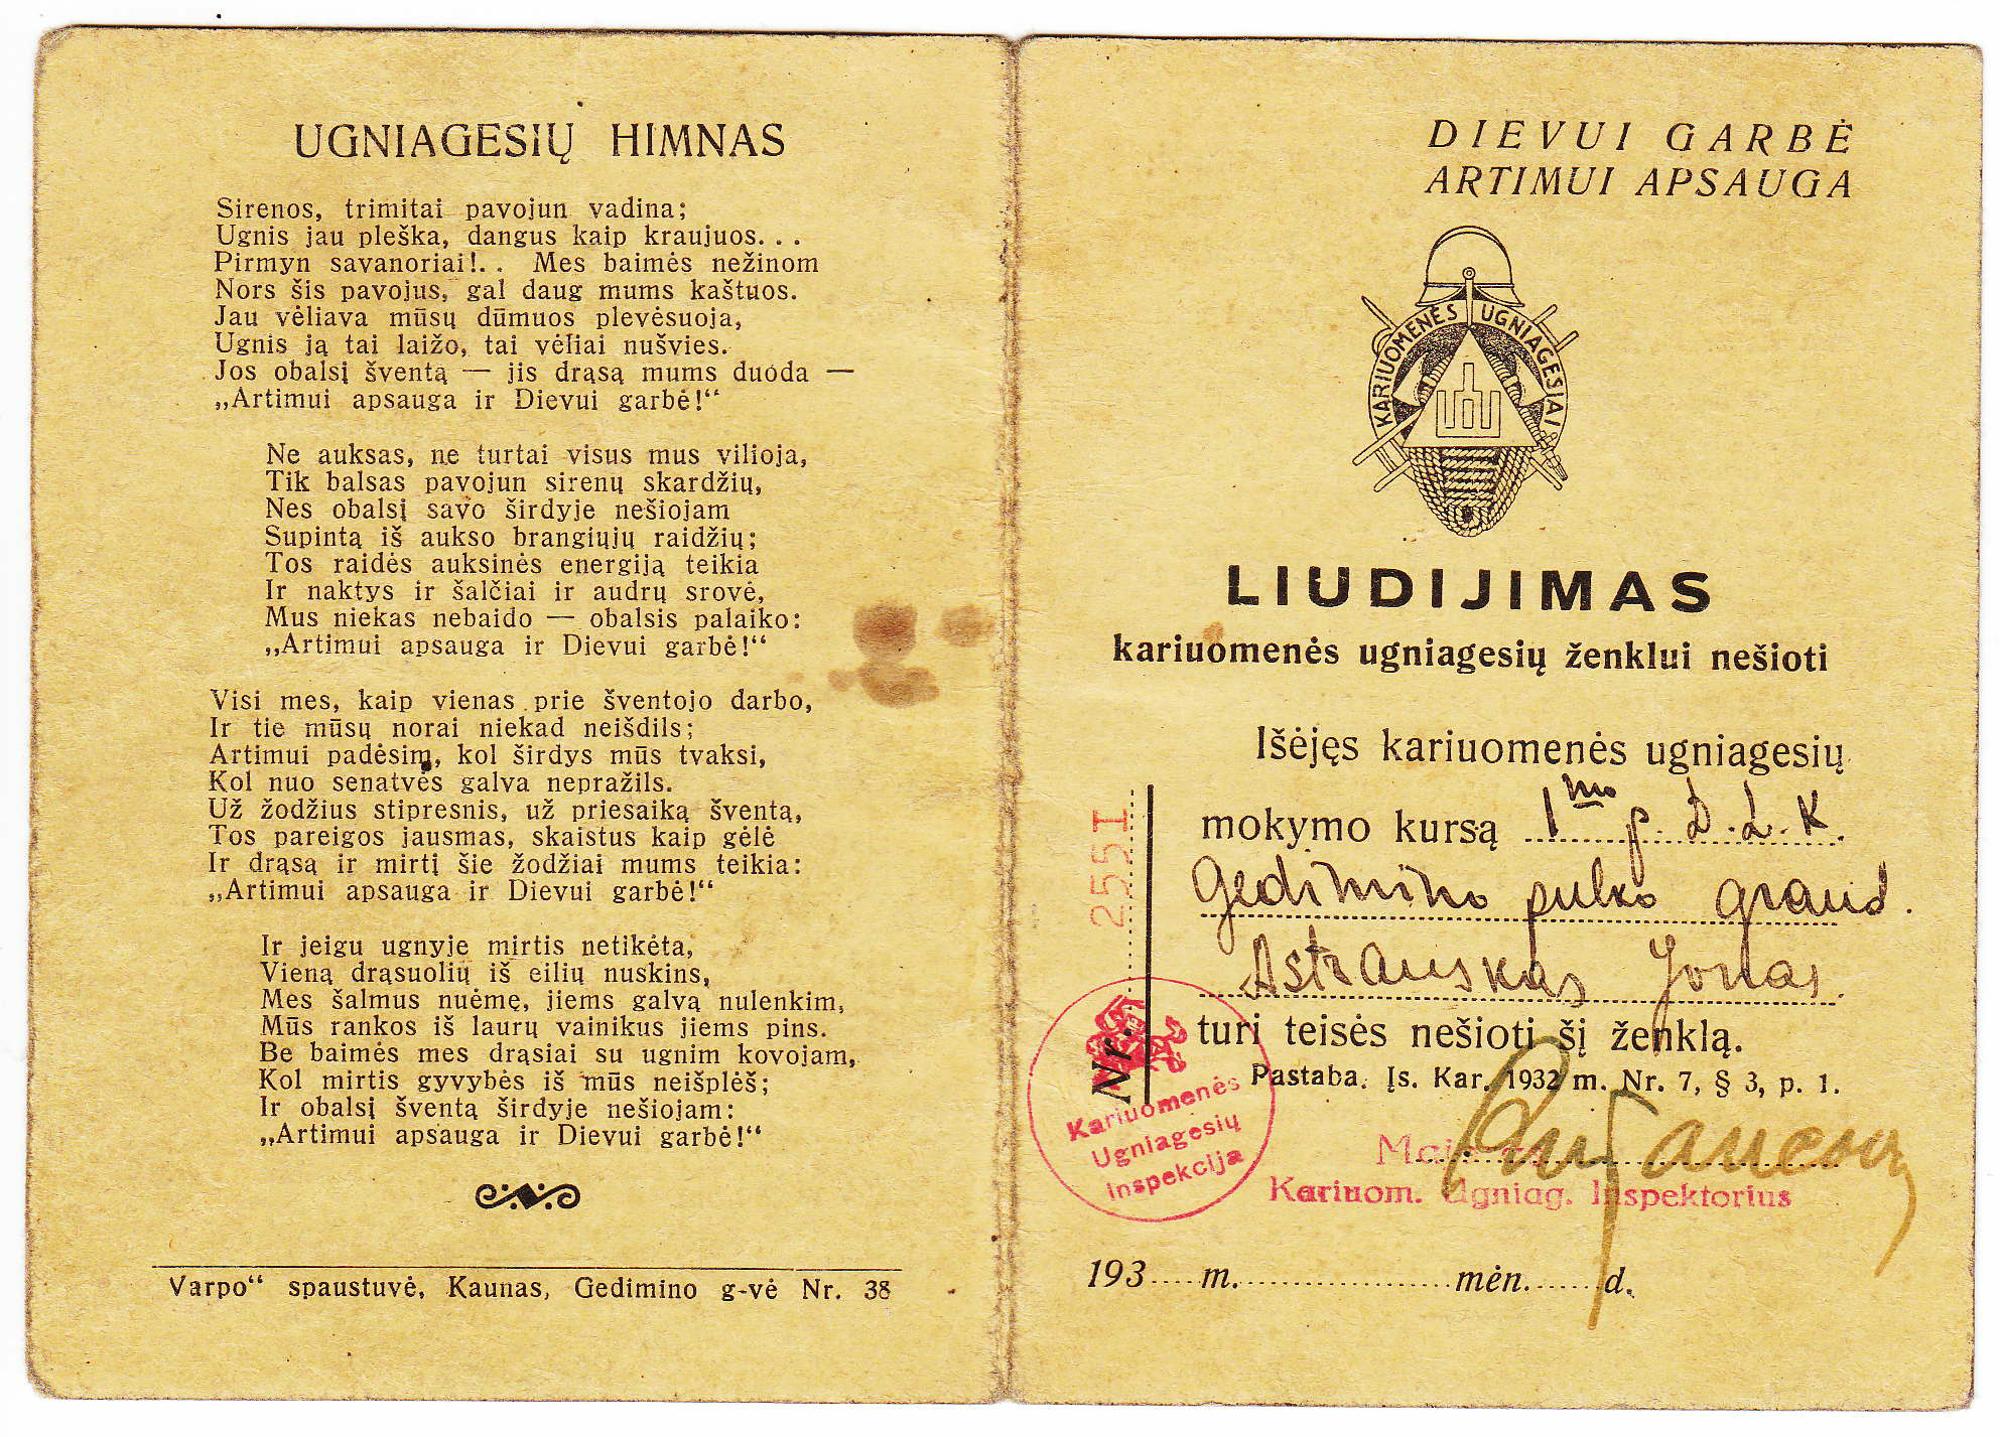 UGNIAGESIŲ HIMNAS
Sirenos, trimitai pavojun vadina;
Ugnis jau pleška, dangus kaip kraujuos. . .
Pirmyn savanoriai!. . Mes baimės nežinom
Nors šis pavojus, gal daug mums kaštuos.
Jau vėliava mūsų dūmuos plevėsuoja,
Ugnis ją tai laižo, tai vėliai nušvies.
Jos obalsį šventą — jis drąsą mums duoda —
„Artimui apsauga ir Dievui garbė!“
Ne auksas, ne turtai visus mus vilioja,
Tik balsas pavojun sirenų skardžių,
Nes obalsį savo širdyje nešiojam
Supintą iš aukso brangiųjų raidžių;
Tos raidės auksinės energiją teikia
Ir naktys ir šalčiai ir audrų srovė,
Mus niekas nebaido — obalsis palaiko:
„Artimui apsauga ir Dievui garbė!“
Visi mes, kaip vienas prie šventojo darbo,
Ir tie mūsų norai niekad neišdils;
Artimui padėsim, kol širdys mūs tvaksi,
Kol nuo senatvės galva nepražils.
Už žodžius stipresnis, už priesaiką šventą,
Tos pareigos jausmas, skaistus kaip gėlė
Ir drąsą ir mirtį šie žodžiai mums teikia:
„Artimui apsauga ir Dievui garbė!“
Ir jeigu ugnyje mirtis netikėta,
Vieną drąsuolių iš eilių nuskins,
Mes šalmus nuėmę, jiems galvą nulenkim,
Mūs rankos iš laurų vainikus jiems pins.
Be baimės mes drąsiai su ugnim kovojam,
Kol mirtis gyvybės iš mūs neišplėš;
Ir obalsį šventą širdyje nešiojam:
„Artimui apsauga ir Dievui garbė!“
Varpo“ spaustuvė, Kaunas, Gedimino g-vė Nr. 38
DIEVUI GARBĖ
ARTIMUI APSAUGA
KARIUOMENĖS UGNIAGESIAI
LIUDIJIMAS
kariuomenės ugniagesių ženklui nešioti
Išėjęs kariuomenės ugniagesių
mokymo kursą 1mo p. D. L. K.
Gedimino pulko grand.
Astrauskas Jonas
turi teisės nešioti šį ženklą.
Pastaba. Įs. Kar. 1932 m. Nr. 7, § 3, p. 1.
Nr. 2551
Kariuomenės
Ugniagesių
Inspekcija
Kariuom. Ugniag. Inspektorius
193 m. mėn. d.